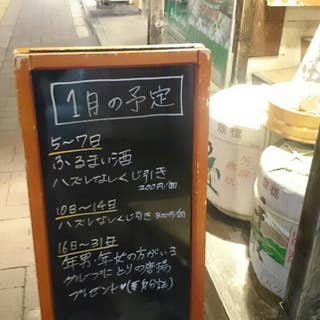 1月の予定
5〜7日
ふるまい酒
ハズレなしくじ引き
200円/回
10日〜14日
ハズレなしくじ引き 200円/回
16日〜31日
年男・年女の方がいる
グループにとりの唐揚
プレゼント♡(要身分証)